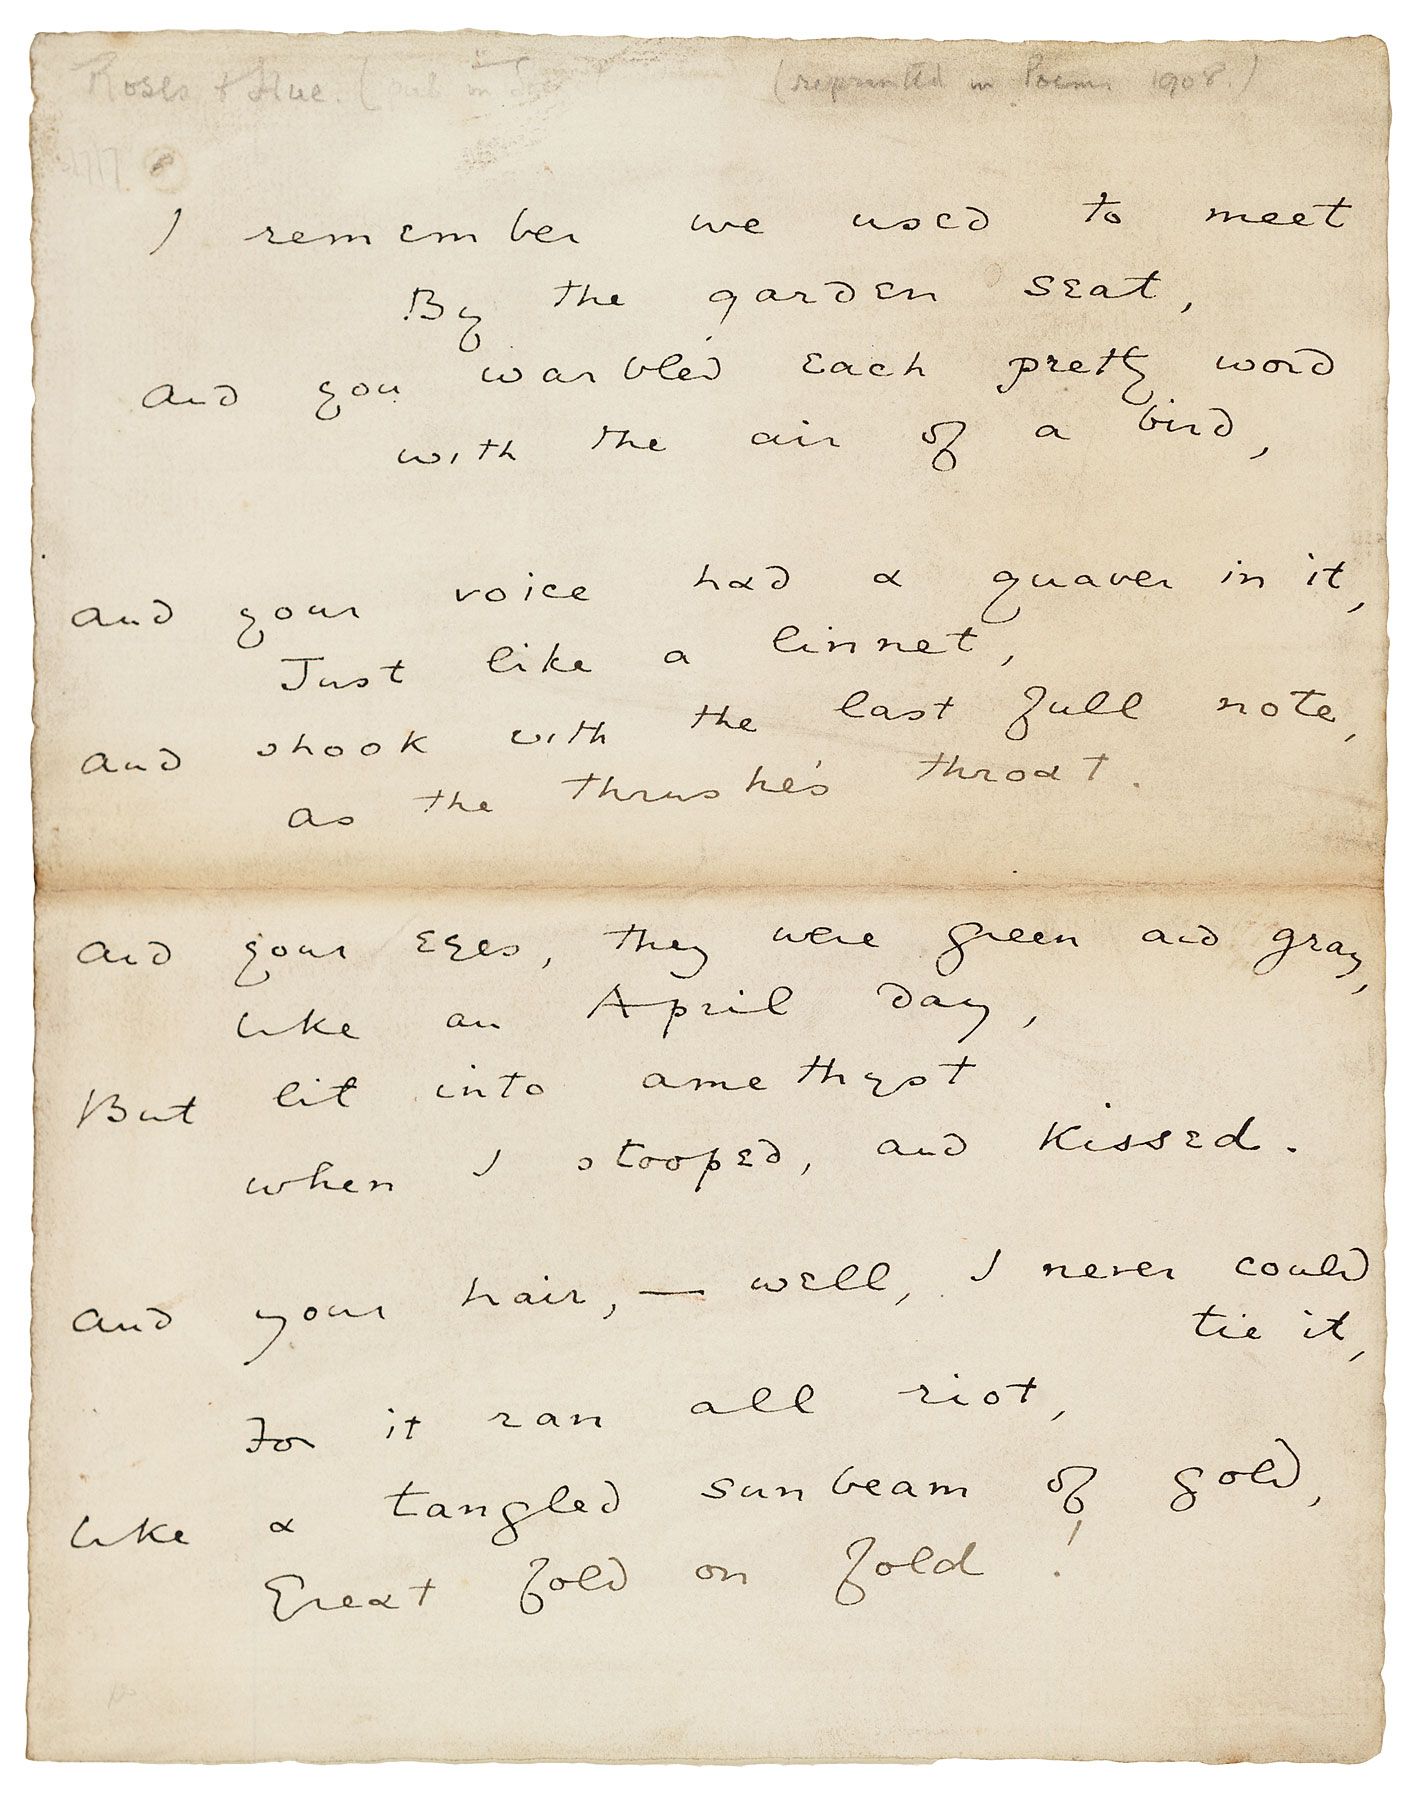 Roses & Rue. (pub in (reprinted in Poems 1908.)
I remember we used to meet
By the garden seat,
and you warbled each pretty word
with the air of a bird,
and your voice had a quaver in it,
Just like a linnet,
and shook with the last full note,
as the thrushe's throat.
and your eyes, they were green and gray,
like an April day,
But lit into amethyst
when I stooped, and kissed.
and your hair, — well, I never could
tie it,
For it ran all riot,
like a tangled sunbeam of gold,
Great fold on fold!